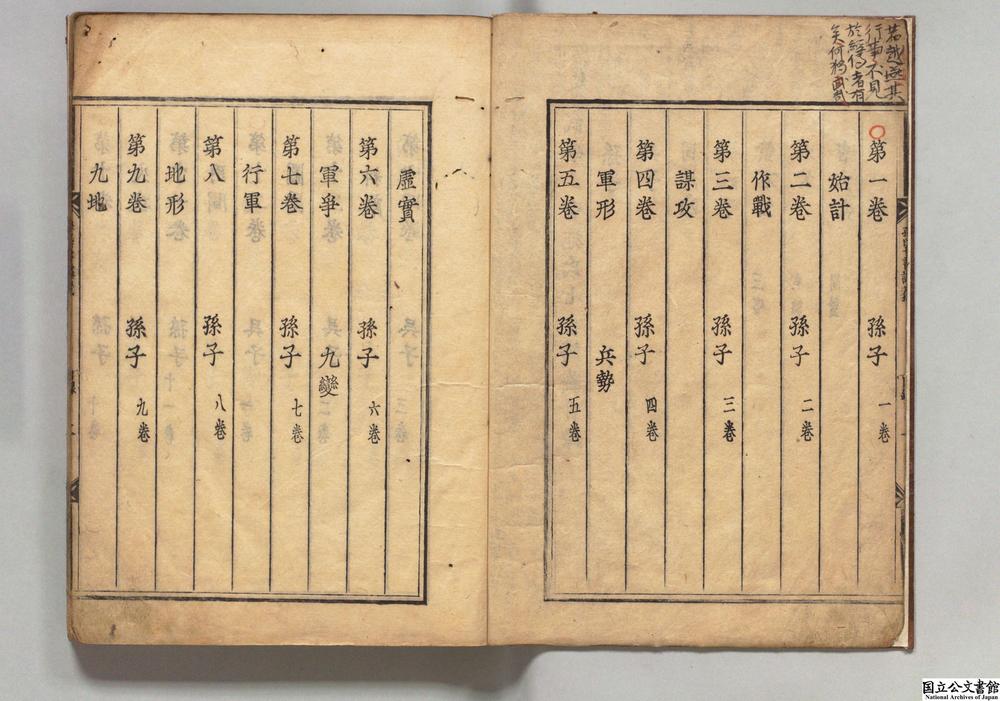 若越㳺其
行事不見
於經傳者有
矣何獨武哉
第一卷 孫子 一卷
始計
第二卷 孫子 二卷
作戰
第三卷 孫子 三卷
謀攻
第四卷 孫子 四卷
軍形 兵勢
第五卷 孫子 五卷
虛實
第六卷 孫子 六卷
軍爭 九變
第七卷 孫子 七卷
行軍
第八 孫子 八卷
地形
第九卷 孫子 九卷
九地
国立公文書館
National Archives of Japan